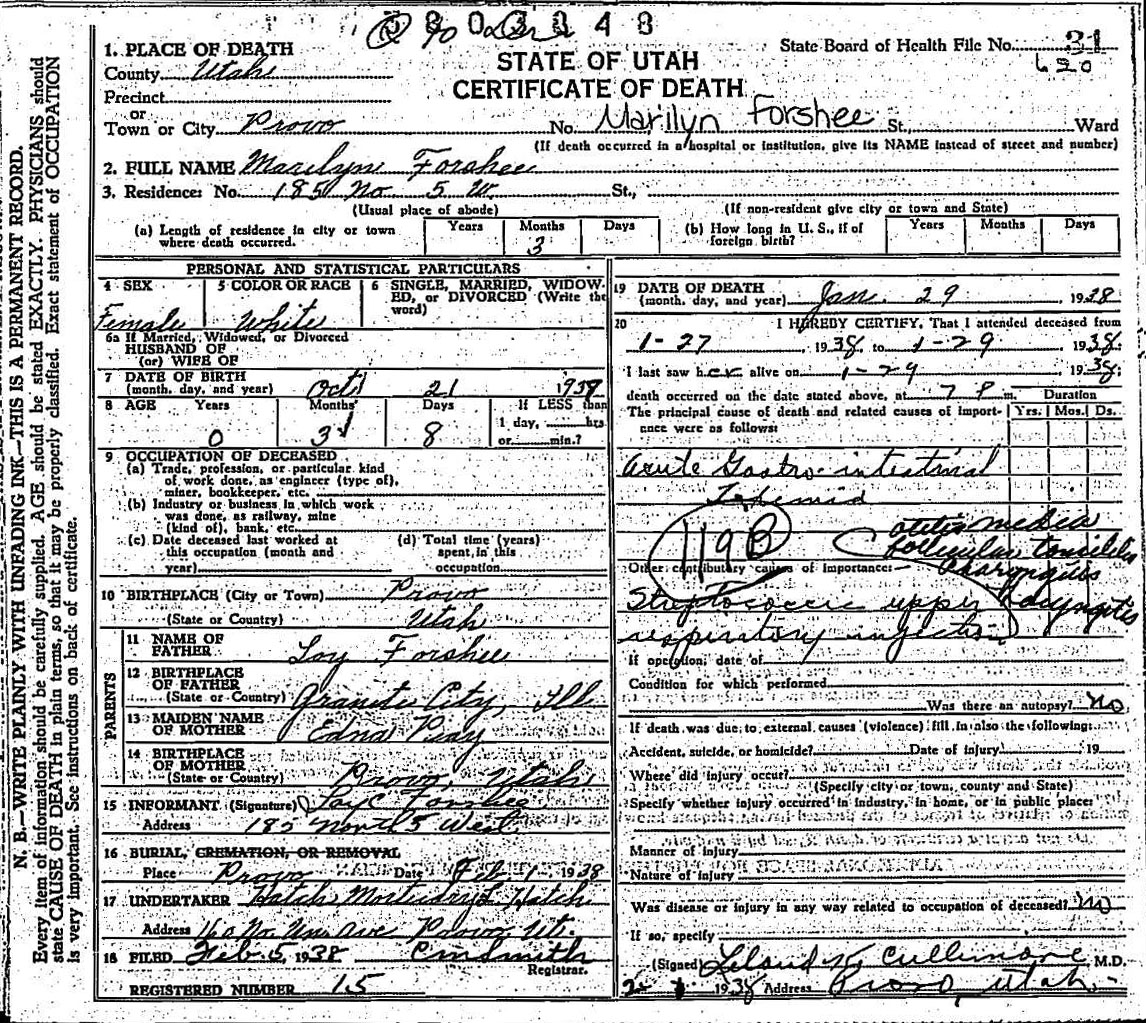 803348
1. PLACE OF DEATH
County Utah
Precinct
or
Town or City Provo No. Marilyn Forshee St., Ward
STATE OF UTAH
CERTIFICATE OF DEATH
State Board of Health File No. 31
(If death occurred in a hospital or institution, give its NAME instead of street and number)
2. FULL NAME Marilyn Forshee
3. Residence: No. 185 No 5 W. St.,
(Usual place of abode) (If non-resident give city or town and State)
(a) Length of residence in city or town where death occurred. Years Months 3 Days
(b) How long in U. S., if of foreign birth? Years Months Days
PERSONAL AND STATISTICAL PARTICULARS
4 SEX Female
5 COLOR OR RACE White
6 SINGLE, MARRIED, WIDOWED, or DIVORCED (Write the word)
6a If Married, Widowed, or Divorced
HUSBAND OF
(or) WIFE OF
7 DATE OF BIRTH
(month, day, and year) Oct 21 1937
8 AGE Years 0 Months 3 Days 8 If LESS than 1 day, hrs or min.?
9 OCCUPATION OF DECEASED
(a) Trade, profession, or particular kind
of work done, as engineer (type of),
miner, bookkeeper, etc.
(b) Industry or business in which work
was done, as railway, mine
(kind of), bank, etc.
(c) Date deceased last worked at
this occupation (month and
year)
(d) Total time (years)
spent in this
occupation
10 BIRTHPLACE (City or Town) Provo
(State or Country) Utah
PARENTS
11 NAME OF
FATHER Loy Forshee
12 BIRTHPLACE
OF FATHER
(State or Country) Granite City, Ill
13 MAIDEN NAME
OF MOTHER Edna
14 BIRTHPLACE
OF MOTHER
(State or Country) Provo, Utah
15 INFORMANT (Signature) Loy C Forshee
Address 185 North 5 West
16 BURIAL, CREMATION, OR REMOVAL
Place Provo Date Feb 1 1938
17 UNDERTAKER Hatch Mortuary
Address 160 No. Uni Ave Provo Ut.
18 FILED Feb. 5, 1938 Smith
Registrar.
REGISTERED NUMBER 15
19 DATE OF DEATH
(month, day, and year) Jan. 29, 1938
20 I HEREBY CERTIFY, That I attended deceased from
1-27 1938 to 1-29 1938
I last saw her alive on 1-29 1938;
death occurred on the date stated above, at 7 P m. Duration
The principal cause of death and related causes of importance were as follows: Yrs. Mos. Ds.
Acute Gastro-intestinal
119 B
otitis media
follicular tonsilitis
Pharyngitis
Laryngitis
Other contributary causes of importance:
Streptococcic upper
respiratory infection
If operation, date of
Condition for which performed
Was there an autopsy? no
If death was due to external causes (violence) fill in also the following:
Accident, suicide, or homicide? Date of injury 19
Where did injury occur?
(Specify city or town, county and State)
Specify whether injury occurred in industry, in home, or in public place:
Manner of injury
Nature of injury
Was disease or injury in any way related to occupation of deceased? no
If so, specify
(Signed) Leland K Cullimore M.D.
1938 Address Provo, Utah
N. B.—WRITE PLAINLY WITH UNFADING INK—THIS IS A PERMANENT RECORD.
Every item of information should be carefully supplied. AGE should be stated EXACTLY. PHYSICIANS should
state CAUSE OF DEATH in plain terms, so that it may be properly classified. Exact statement of OCCUPATION
is very important. See instructions on back of certificate.